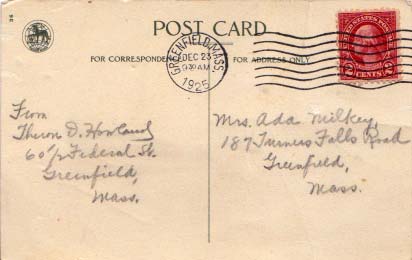 36
POST CARD
FOR CORRESPONDENCE
FOR ADDRESS ONLY
GREENFIELD, MASS.
DEC 23
9 30 AM
1925
UNITED STATES POSTAGE
2 CENTS 2
From
Theron D. Howland
Federal St.
Greenfield,
Mass.
Mrs. Ada Milkey,
187 Turners Falls Road
Greenfield,
Mass.